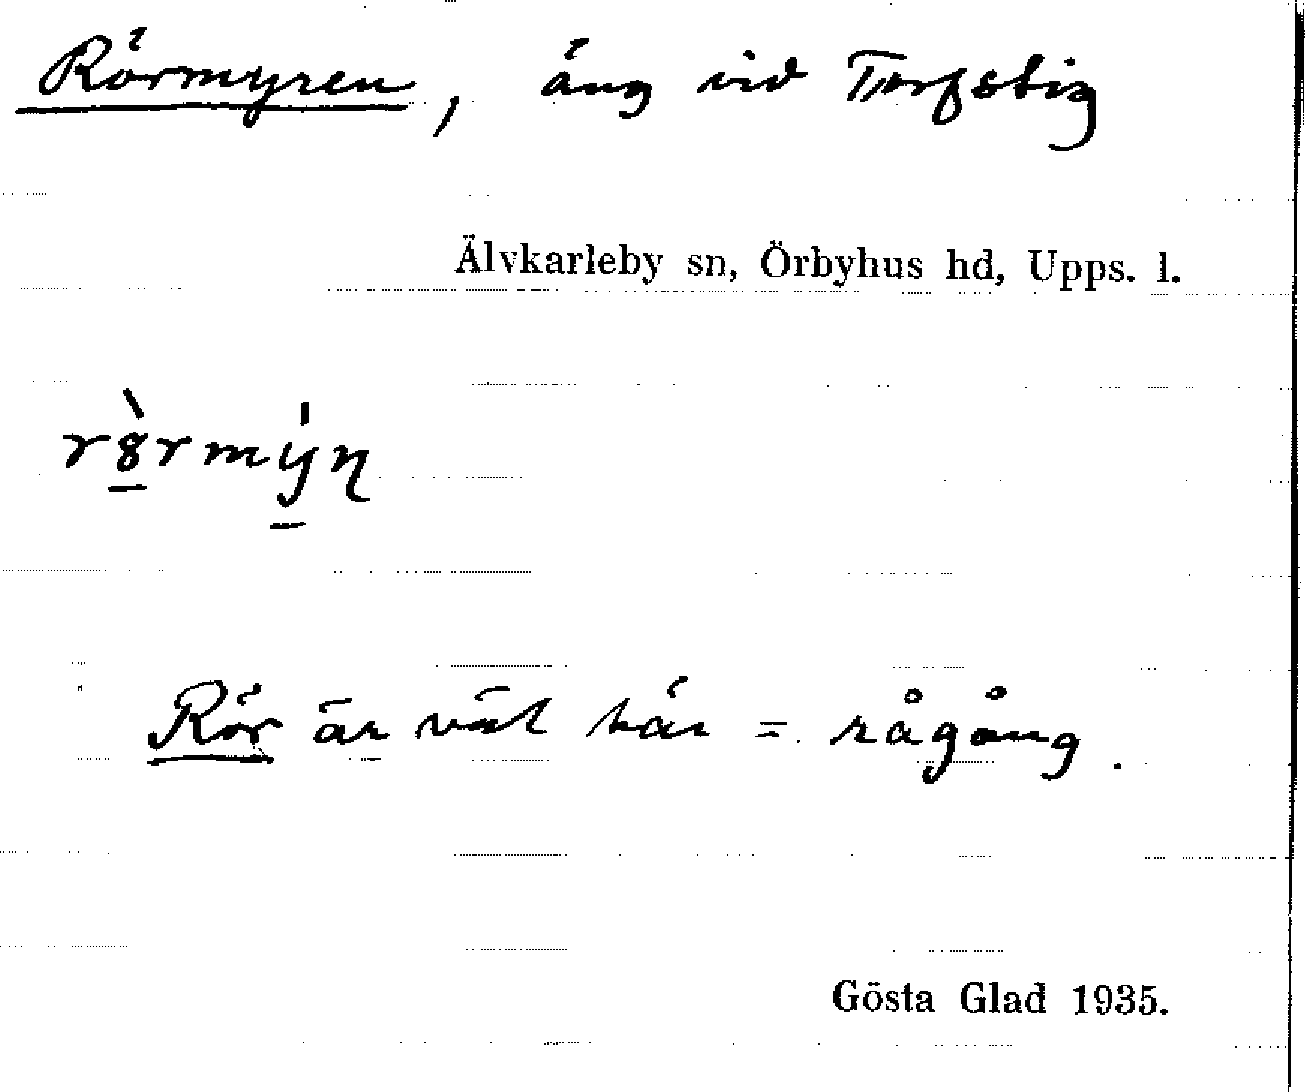 Rörmyren, äng vid Torfstig
Älvkarleby sn, Örbyhus hd, Upps. l.
Rör är väl här = rågång.
Gösta Glad 1935.